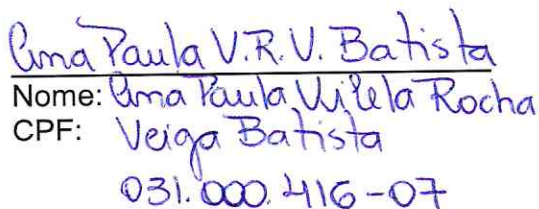 Ana Paula V.R.V. Batista
Nome: Ana Paula Vilela Rocha
CPF: Veiga Batista
031.000.416-07